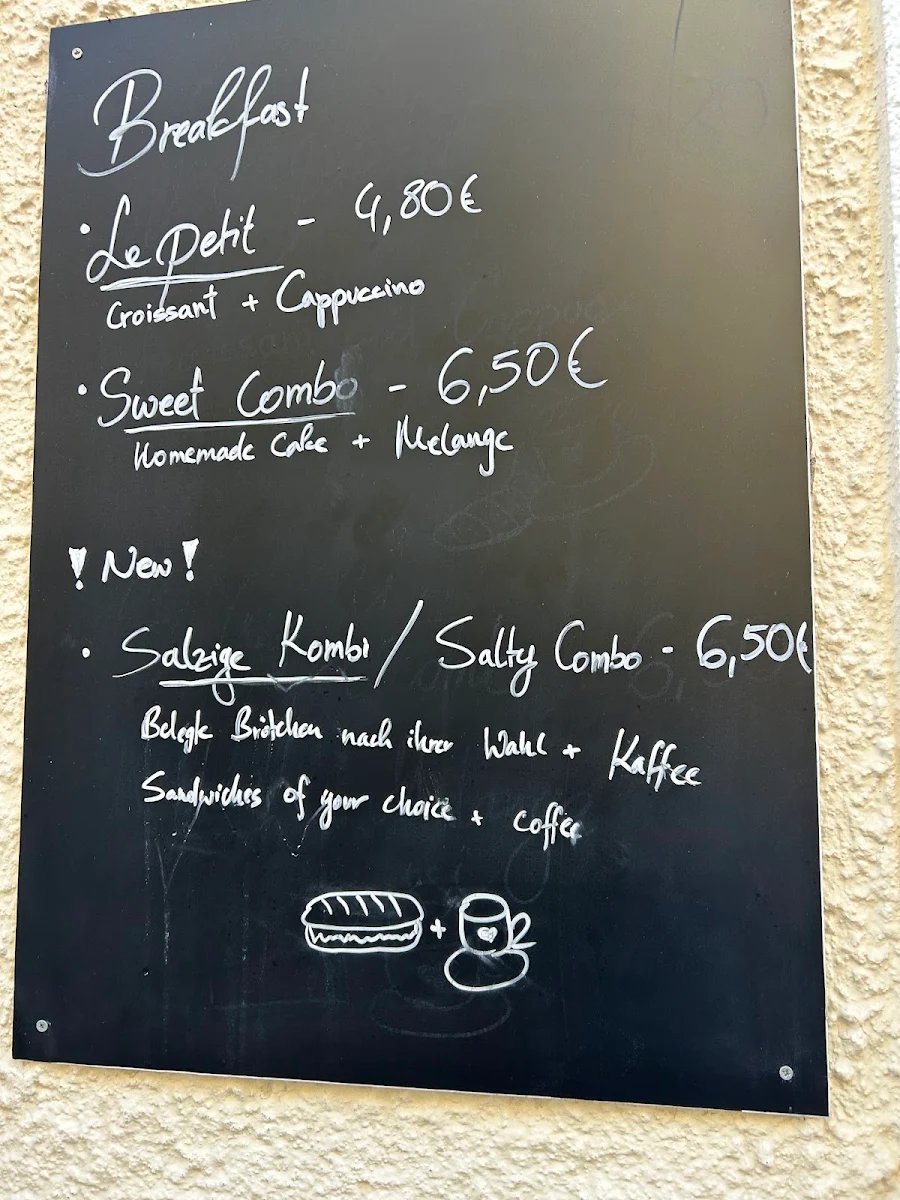 Breakfast
• Le petit - 4,80€
Croissant + Cappuccino
• Sweet Combo - 6,50€
Homemade Cake + Melange
! New !
• Salzige Kombi / Salty Combo - 6,50€
Belegte Brötchen nach ihrer Wahl + Kaffee
Sandwiches of your choice + coffee